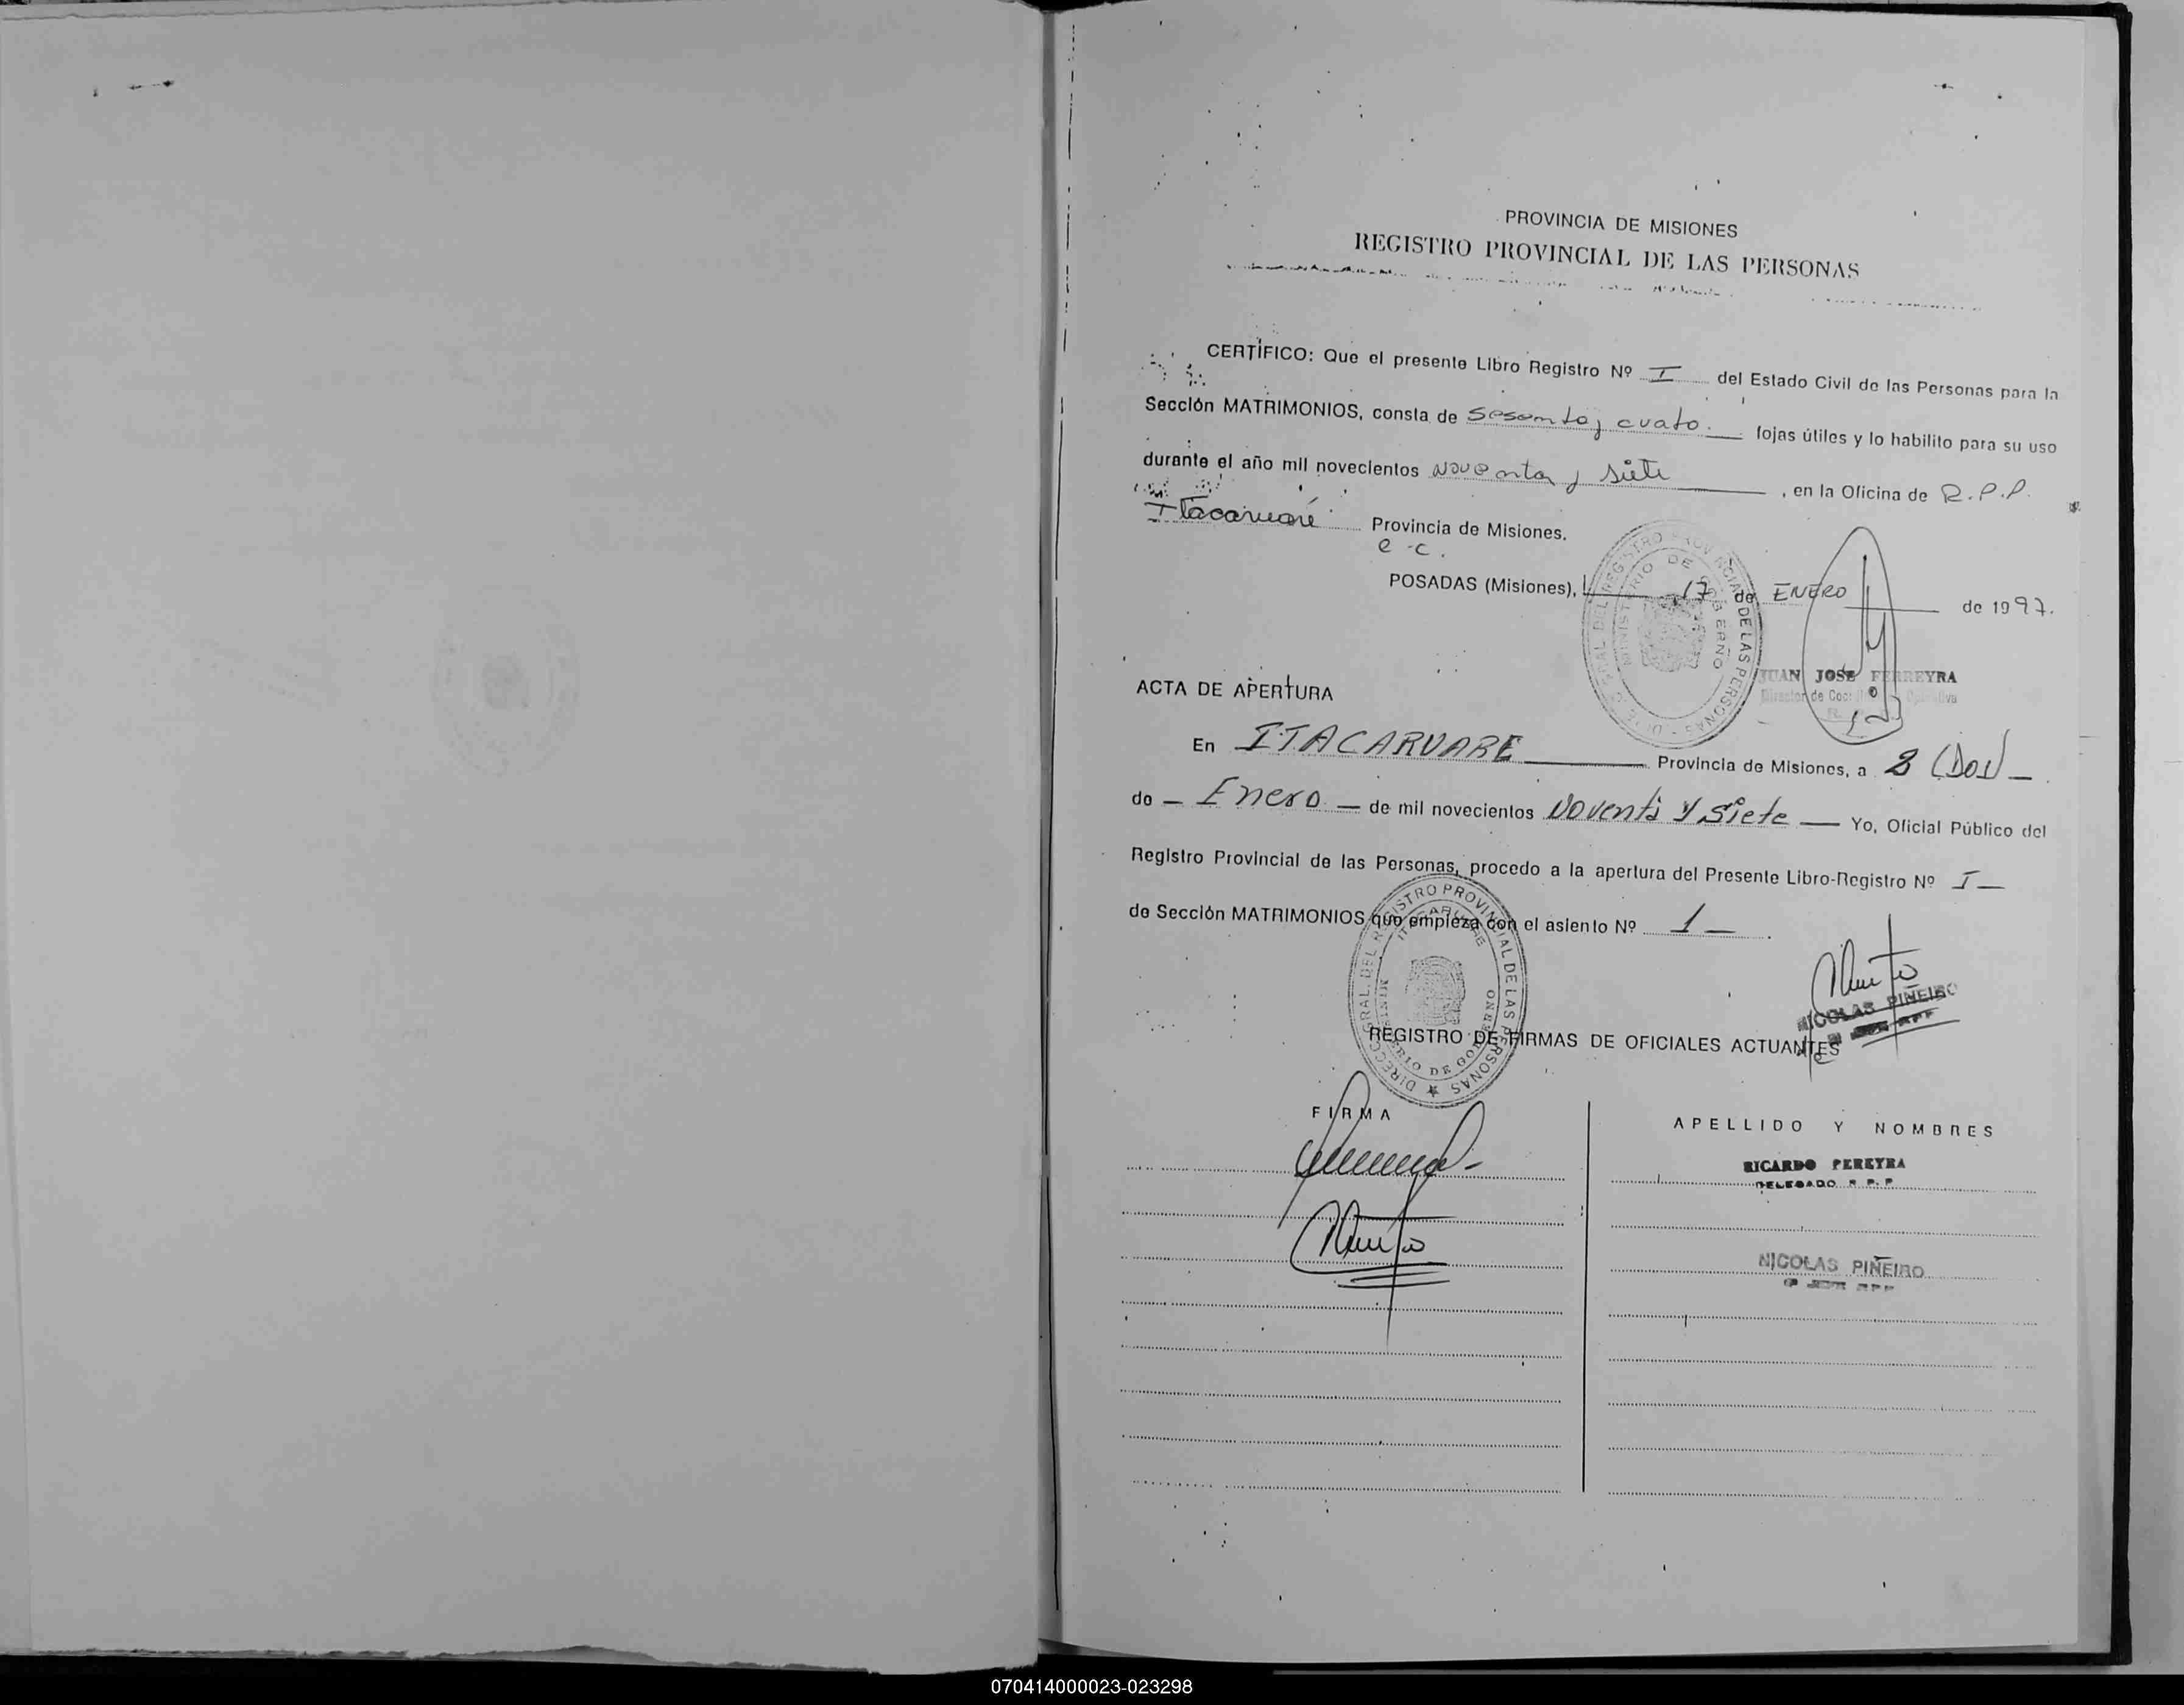 PROVINCIA DE MISIONES
REGISTRO PROVINCIAL DE LAS PERSONAS
CERTIFICO: Que el presente Libro Registro Nº I del Estado Civil de las Personas para la
Sección MATRIMONIOS, consta de sesenta y cuato. fojas útiles y lo habilito para su uso
durante el año mil novecientos noventa y siete, en la Oficina de R.P.P.
Itacaruaré Provincia de Misiones.
e c.
POSADAS (Misiones), 17 de ENERO de 1997.
JUAN JOSE FERREYRA
Director de
ACTA DE APERTURA
En ITACARUARE Provincia de Misiones, a 2 (Dos)
de Enero de mil novecientos Noventa y Siete Yo, Oficial Público del
Registro Provincial de las Personas, procedo a la apertura del Presente Libro-Registro Nº I
de Sección MATRIMONIOS que empieza con el asiento Nº 1
NICOLAS PIÑEIRO
REGISTRO DE FIRMAS DE OFICIALES ACTUANTES
FIRMA APELLIDO Y NOMBRES
RICARDO PEREYRA
DELEGADO R. P. P
NICOLAS PIÑEIRO
070414000023-023298